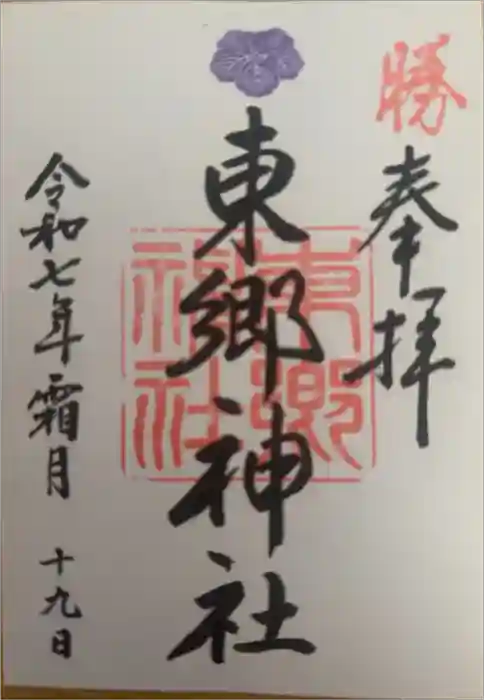 勝
奉拝
東郷神社
東郷
神社
令和七年霜月 十九日